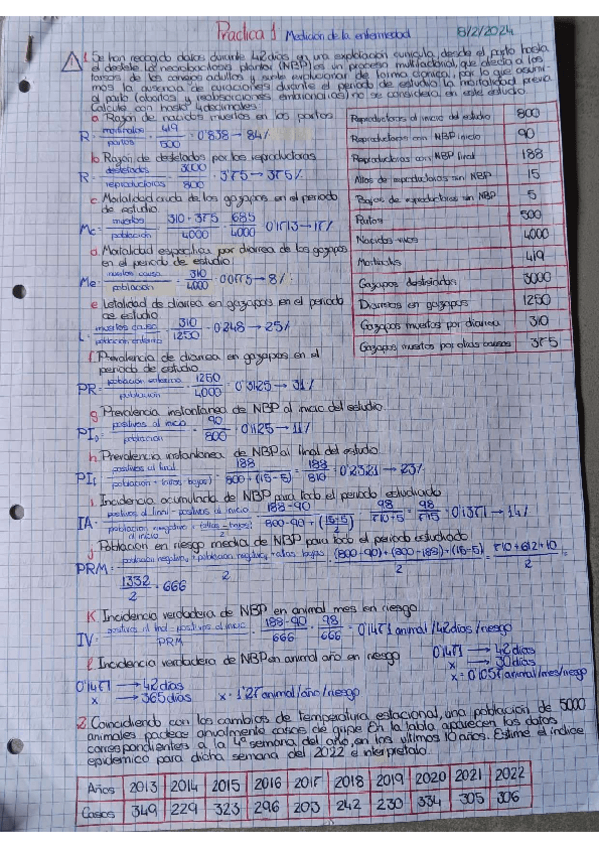 Práctica 1 Medición de la enfermedad 8/2/2024
1. Se han recogido datos durante 42 días en una explotación cunícula, desde el parto hasta
el destete. La necrobacilosis plantar (NBP) es un proceso multifactorial, que afecta a los
tarsos de los conejos adultos y suele evolucionar de forma crónica, por lo que asumi-
mos la ausencia de curaciones durante el periodo de estudio la mortalidad previa
al parto (abortos y reabsorciones embrionarias) no se considera en este estudio.
Calcula con hasta 4 decimales
a. Razón de nacidos muertos en los partos
R = mortinatos / partos = 419 / 500 = 0'838 → 84%
b. Razón de destetados por las reproductoras
R = destetados / reproductoras = 3000 / 800 = 3'75 → 375%
c. Mortalidad cruda de los gazapos en el periodo
de estudio
Mc = muertos / población = 310 + 375 / 4000 = 685 / 4000 = 0'1713 → 17%
d. Mortalidad específica por diarrea de los gazapos
en el periodo de estudio
Me = muertos causa / población = 310 / 4000 = 0'0775 → 8%
e. Letalidad de diarrea en gazapos en el periodo
de estudio
L = muertos causa / población enferma = 310 / 1250 = 0'248 → 25%
f. Prevalencia de diarrea en gazapos en el
periodo de estudio
PR = población enferma / población = 1250 / 4000 = 0'3125 → 31%
g. Prevalencia instantánea de NBP al inicio del estudio
PI₀ = positivos al inicio / población = 90 / 800 = 0'1125 → 11%
h. Prevalencia instantánea de NBP al final del estudio
PI₁ = positivos al final / población + (altas - bajas) = 188 / 800 + (15 - 5) = 188 / 810 = 0'2321 → 23%
i. Incidencia acumulada de NBP para todo el periodo estudiado
IA = positivos al final - positivos al inicio / población negativa al inicio + (altas - bajas) / 2 = 188 - 90 / 800 - 90 + (15-5) / 2 = 98 / 710 + 5 = 98 / 715 = 0'1371 → 14%
j. Población en riesgo media de NBP para todo el periodo estudiado
PRM = población negativa₀ + población negativa₁ + altas bajas / 2 = (800 - 90) + (800 - 188) + (15 - 5) / 2 = 710 + 612 + 10 / 2 =
1332 / 2 = 666
K. Incidencia verdadera de NBP en animal mes en riesgo
IV = positivos al final - positivos al inicio / PRM = 188 - 90 / 666 = 98 / 666 = 0'1471 animal / 42 días / riesgo
l. Incidencia verdadera de NBP en animal año en riesgo
0'1471 → 42 días
x → 30 días
x = 0'105 animal/mes/riesgo
0'1471 → 42 días
x → 365 días
x = 1'27 animal/año/riesgo
2. Coincidiendo con los cambios de temperatura estacional, una población de 5000
animales padece anualmente casos de gripe. En la tabla aparecen los datos
correspondientes a la 4ª semana del año, en los últimos 10 años. Estime el índice
epidémico para dicha semana del 2022 e interprétalo.
Años 2013 2014 2015 2016 2017 2018 2019 2020 2021 2022
Casos 349 229 323 296 203 242 230 334 305 306
Reproductoras al inicio del estudio 800
Reproductoras con NBP inicio 90
Reproductoras con NBP final 188
Altas de reproductoras sin NBP 15
Bajas de reproductoras sin NBP 5
Partos 500
Nacidos vivos 4000
Mortinatos 419
Gazapos destetados 3000
Diarreas en gazapos 1250
Gazapos muertos por diarrea 310
Gazapos muertos por otras causas 375